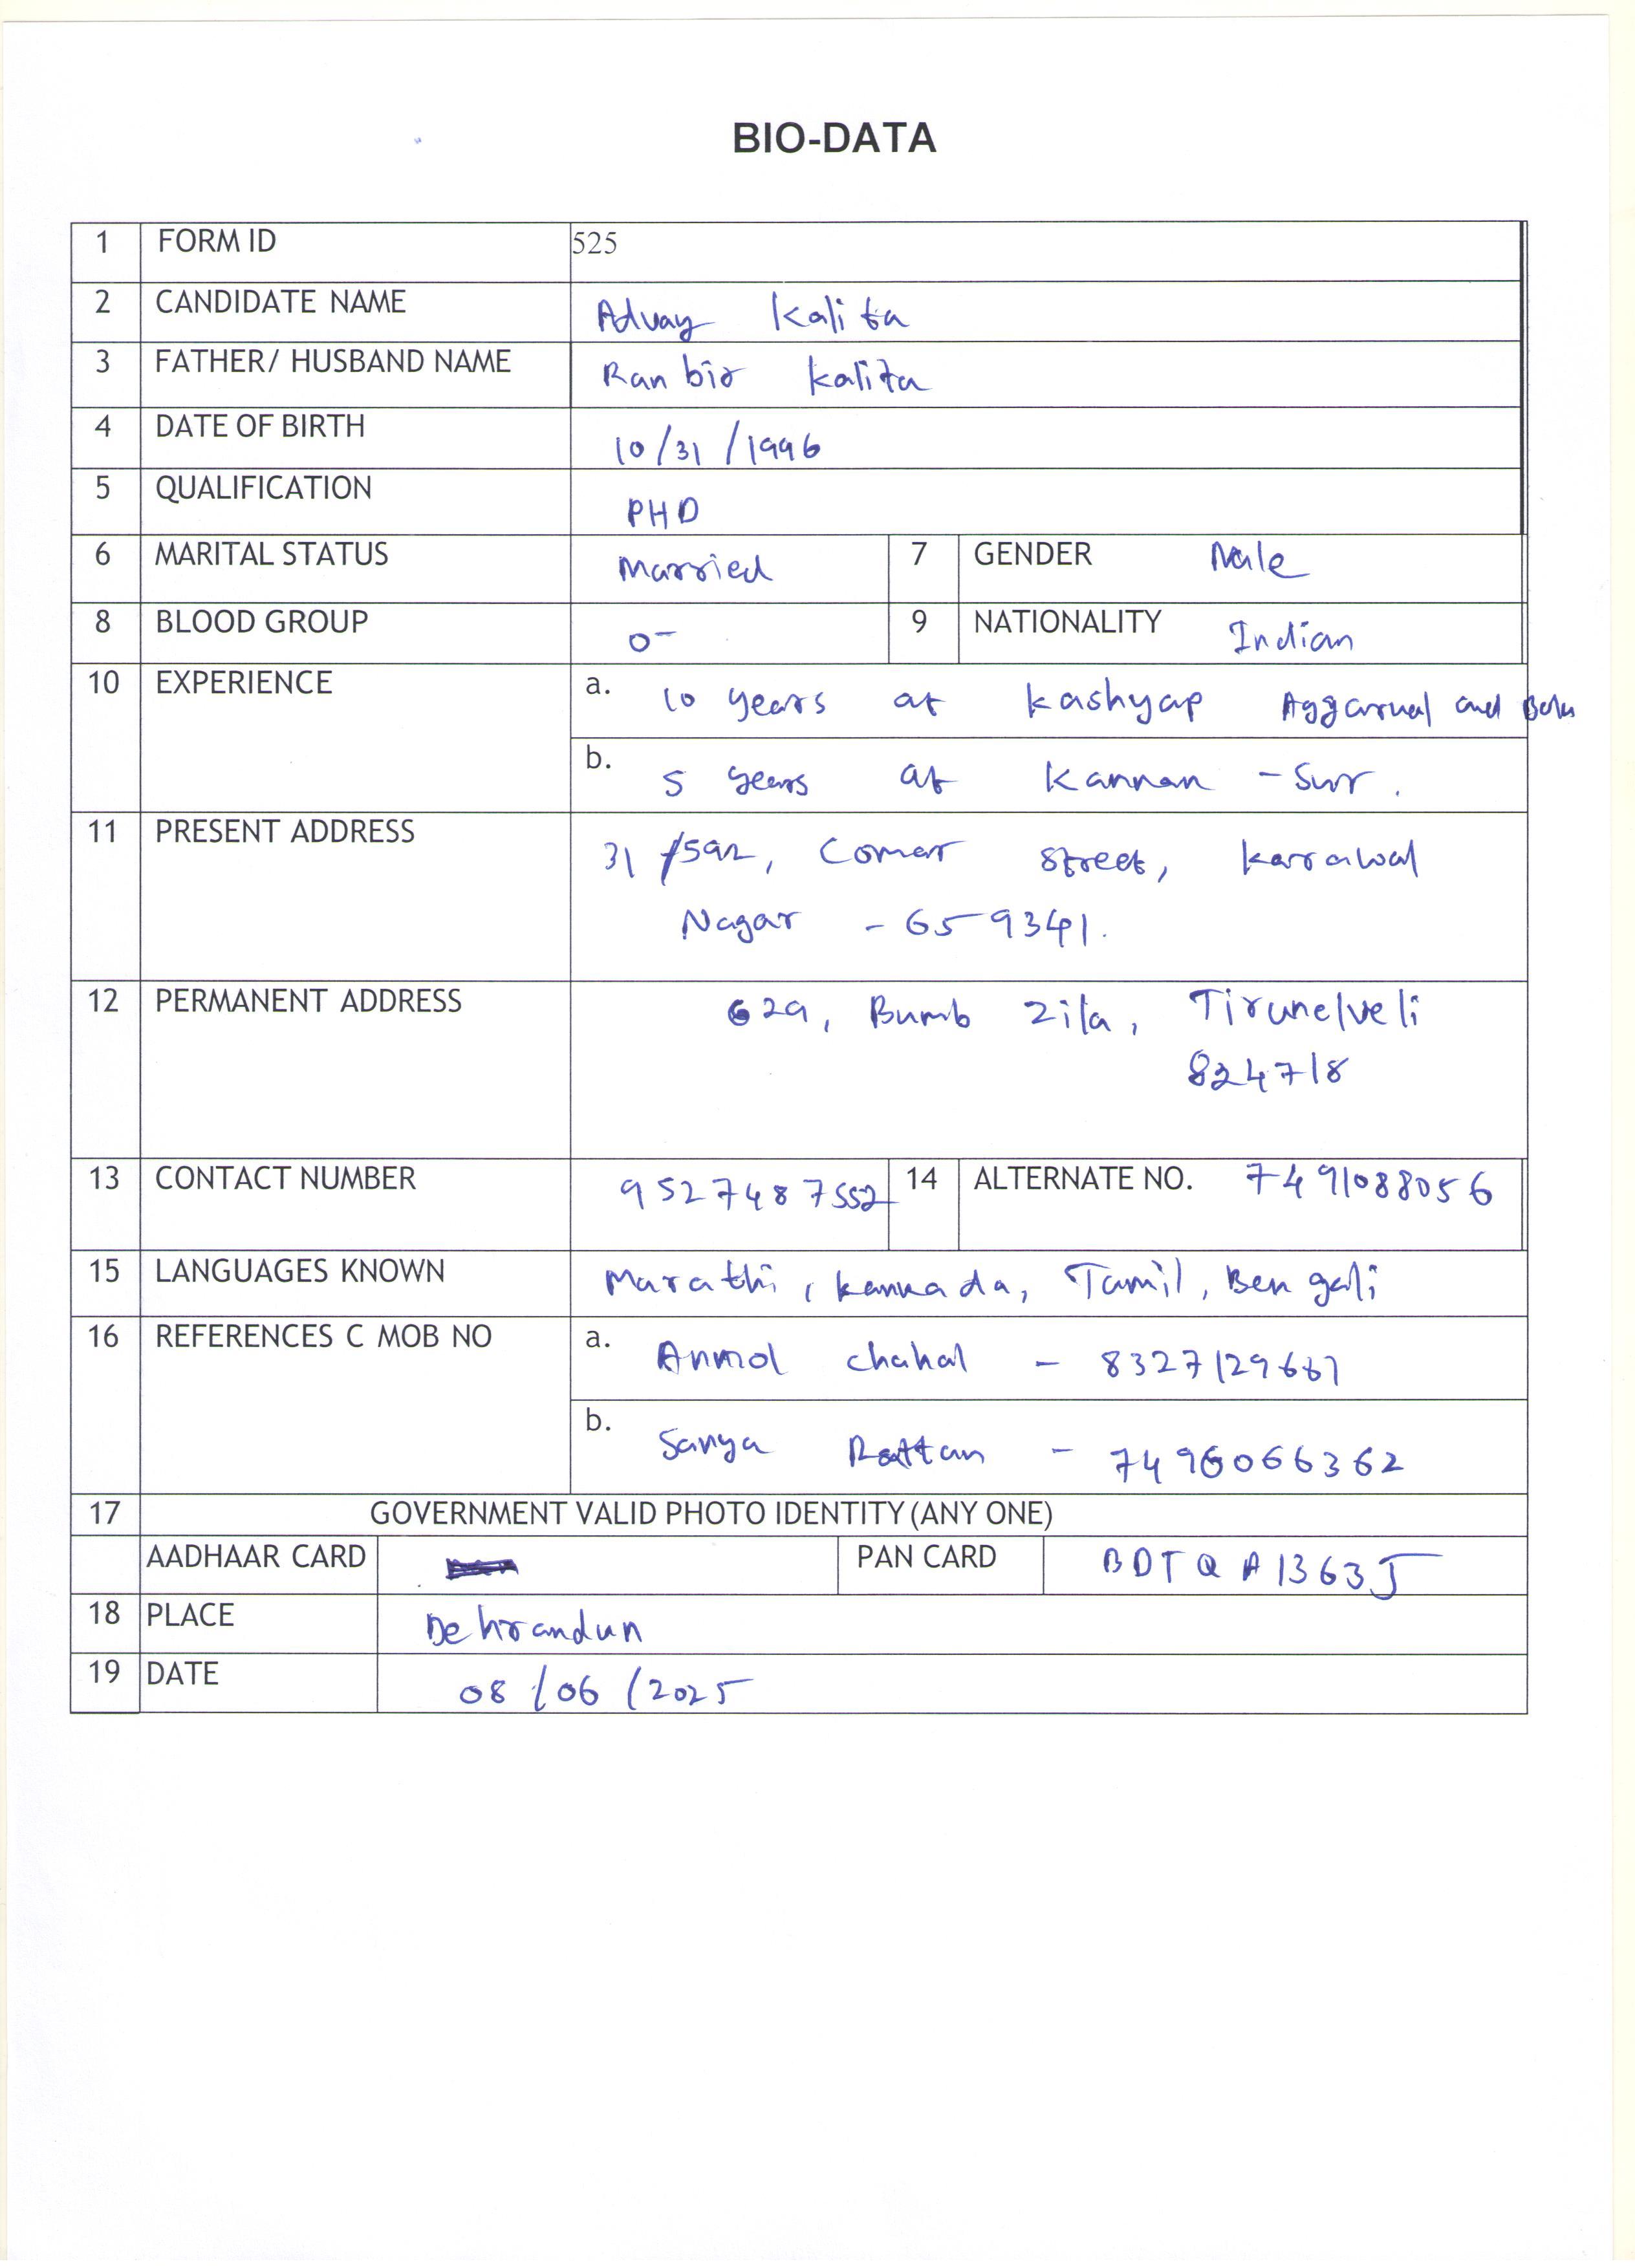 BIO-DATA
1 FORM ID 525
2 CANDIDATE NAME Advay Kalita
3 FATHER/ HUSBAND NAME Ranbir Kalita
4 DATE OF BIRTH 10/31/1996
5 QUALIFICATION PHD
6 MARITAL STATUS Married 7 GENDER Male
8 BLOOD GROUP O- 9 NATIONALITY Indian
10 EXPERIENCE a. 10 years at Kashyap Aggarwal and
b. 5 years at Kannan - Sur.
11 PRESENT ADDRESS 31/592, Comar Street, Karawal
Nagar - 659341.
12 PERMANENT ADDRESS 629, Bumb Zila, Tirunelveli
824718
13 CONTACT NUMBER 9527487552 14 ALTERNATE NO. 7491088056
15 LANGUAGES KNOWN Marathi, Kannada, Tamil, Bengali
16 REFERENCES C MOB NO a. Anmol Chahal - 8327129667
b. Sanya Rattan - 7496066362
17 GOVERNMENT VALID PHOTO IDENTITY (ANY ONE)
AADHAAR CARD PAN CARD BDTQA1363J
18 PLACE Dehrandun
19 DATE 08/06/2025